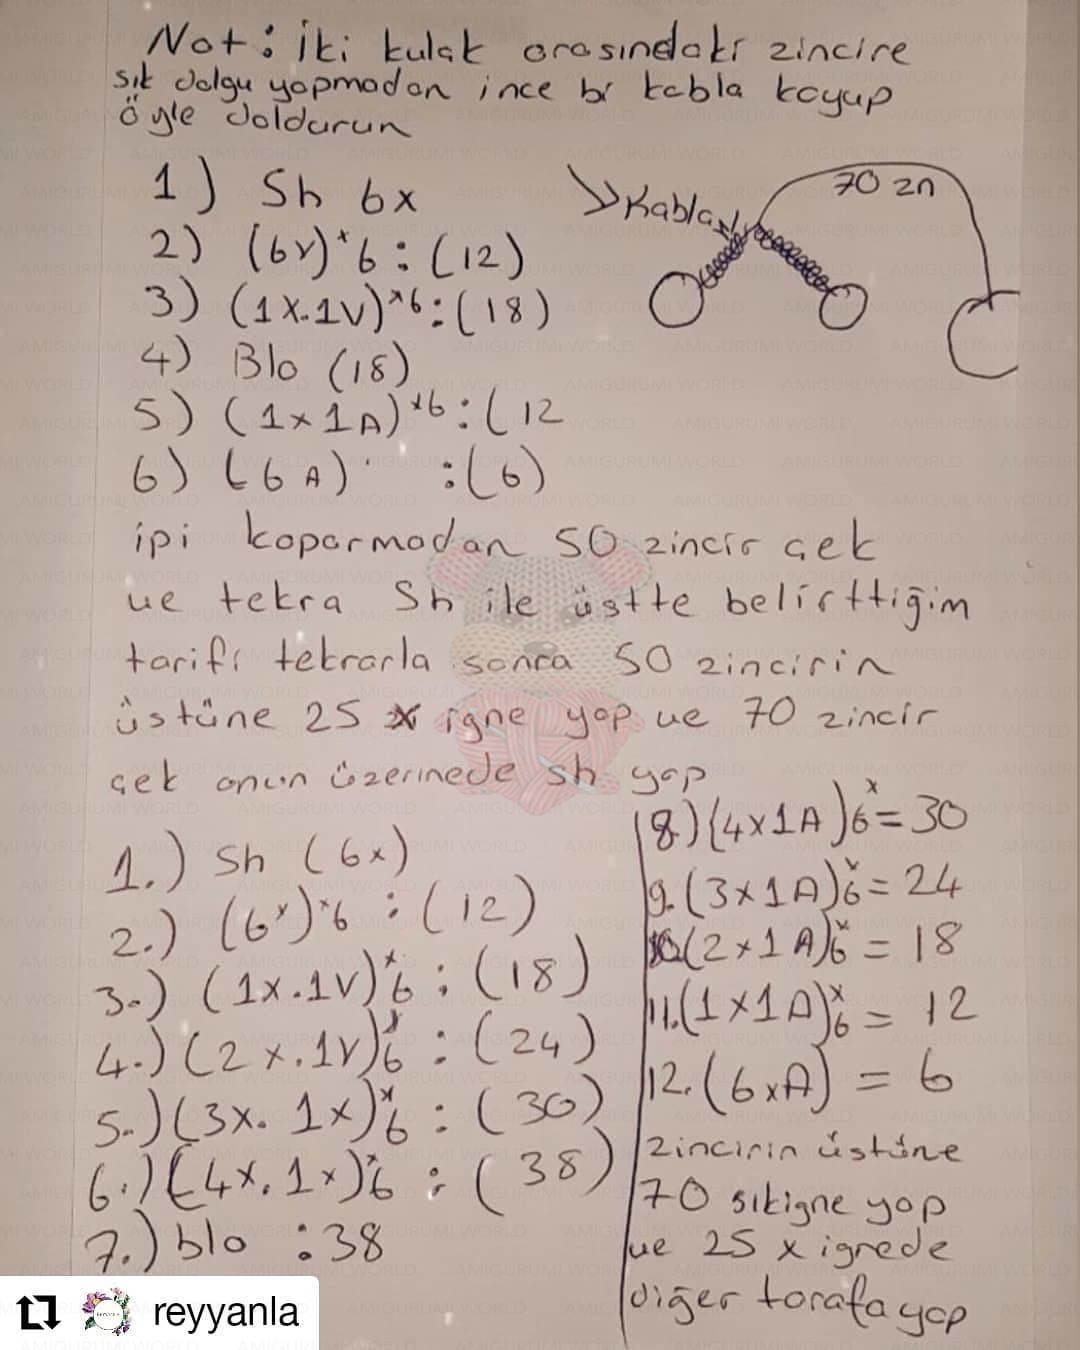 Not: İki kulak arasındaki zincire
sık dolgu yapmadan ince bi kabla koyup
öyle doldurun
1) Sh 6x
2) (6v)*6 : (12)
3) (1x.1v)*6 : (18)
4) Blo (18)
5) (1x1A)*6 : (12
6) (6A) : (6)
Kablo
70 zn
ipi koparmadan 50 zincir çek
ve tekra Sh ile üstte belirttiğim
tarifi tekrarla sonra 50 zincirin
üstüne 25 x iğne yap ve 70 zincir
çek onun üzerinede sh yap
1.) Sh (6x)
2.) (6v)*6 : (12)
3.) (1x.1v)*6 : (18)
4.) (2x.1v)*6 : (24)
5.) (3x.1x)*6 : (30)
6.) (4x.1x)*6 : (38)
7.) blo : 38
8) (4x1A)6* = 30
9. (3x1A)6* = 24
10. (2x1A)6* = 18
11. (1x1A)*6 = 12
12. (6xA) = 6
zincirin üstüne
70 sıkiğne yap
ve 25 x iğnede
diğer tarafa yap
reyyanla
AMIGURUMI WORLD